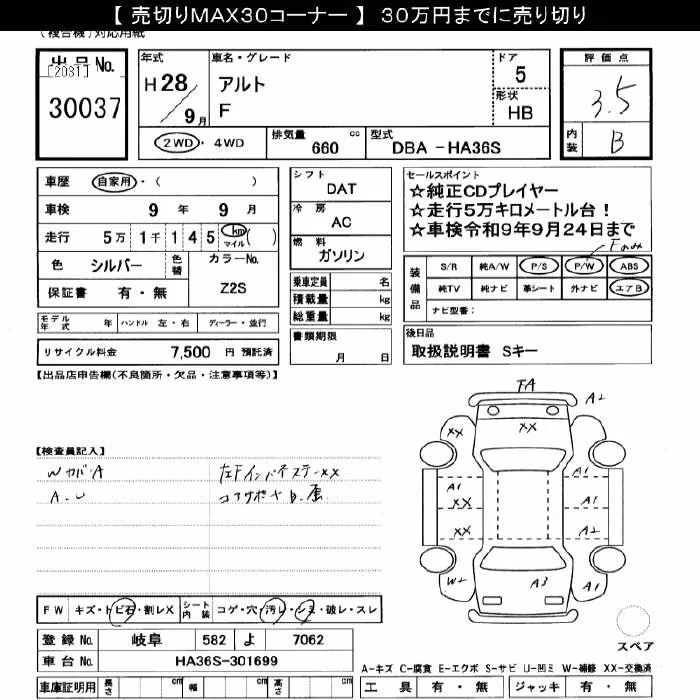 【 売切りMAX30コーナー 】 30万円までに売り切り
(複合機)対応用紙
出品No.
[2031]
30037
年式
H 28
9月
車名・グレード
アルト
F
ドア
5
形状
HB
評価点
3.5
内装
B
2WD・4WD
排気量
660 cc
型式
DBA -HA36S
車歴 自家用・( )
車検 9 年 9 月
走行 5万 1千 1 4 5 km マイル ( )
色 シルバー 色替 カラーNo.
保証書 有・無 Z2S
シフト
DAT
冷房
AC
燃料
ガソリン
乗車定員 名
積載量 kg
総重量 kg
セールスポイント
☆純正CDプレイヤー
☆走行5万キロメートル台！
☆車検令和9年9月24日まで
Fのみ
装備品
S/R 純A/W P/S P/W ABS
純TV 純ナビ 革シート 外ナビ エアB
ナビ型番：
モデル年式 年 ハンドル 左・右 ディーラー・並行
書類期限
月 日
後日品
取扱説明書 Sキー
リサイクル料金 7,500 円 預託済
【出品店申告欄(不良箇所・欠品・注意事項等)】
FA
A2
XX
XX
XX
A1
XX
A1
XX
A2
W2
A3
A1
【検査員記入】
WカバーA
A.U
左FインパネステーXX
コアサポサビ
FW キズ・トビ石・割レX シート内装 コゲ・穴・汚レ・シミ・破レ・スレ
登録No. 岐阜 582 よ 7062
車台No. HA36S-301699
車庫証明用 長さ cm 幅 cm 高さ cm
スペア
A-キズ C-腐食 E-エクボ S-サビ U-凹ミ W-補修 XX-交換済
工具 有・無 ジャッキ 有・無